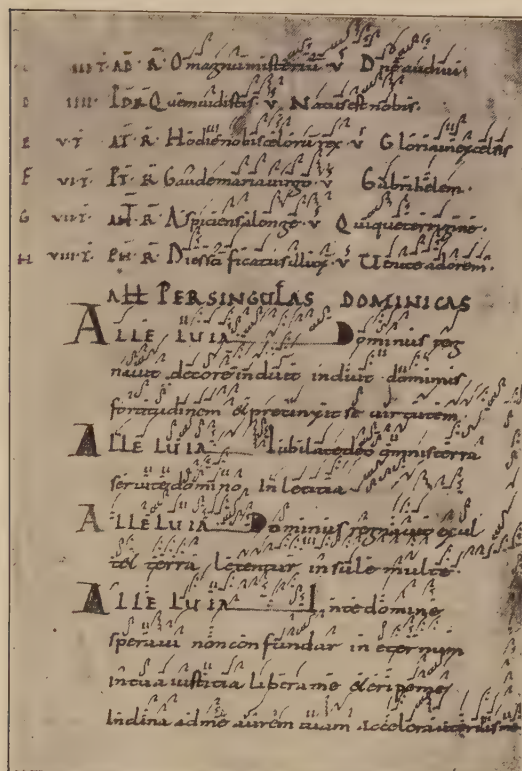 IIII T· AD· R̄· O magnum misteriū· v̄ D n̄e audivi·
D IIII· IDR Quem vidistis· v̄· Natus est nobis·
E V·T· AT· R̄· Hodie nobis celorū rex· v̄ Gloria in excelsis
F VI·T· PT· R̄· Gaude maria virgo· v̄ Gabrihelem·
G VII·T· R̄· Aspiciens a longe· v̄ Quique terrigine·
H VIII·T· PH· R̄· Dies scificatus illux· v̄ Venite adorem·
ALL PER SINGULAS DOMINICAS
ALLE LUIA Dominus reg
navit decore induit induit dominus
fortitudinem et precinxit se virtutem
ALLE LUIA Iubilate deo omnis terra
servite domino in letitia
ALLE LUIA Dominus regnavit exul
tet terra letentur insule multe·
ALLE LUIA In te domine
speravi non confundar in eternum
in tua iusticia libera me et eripe me
Inclina ad me aurem tuam accelera